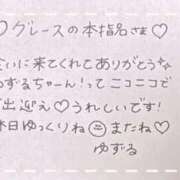 ♡グレースの本指名さま♡
会いに来てくれてありがとうな
ゆずるちゃーん!ってニコニコで
出迎え♡うれしいです!
本日ゆっくりね☺またね♡
ゆずる